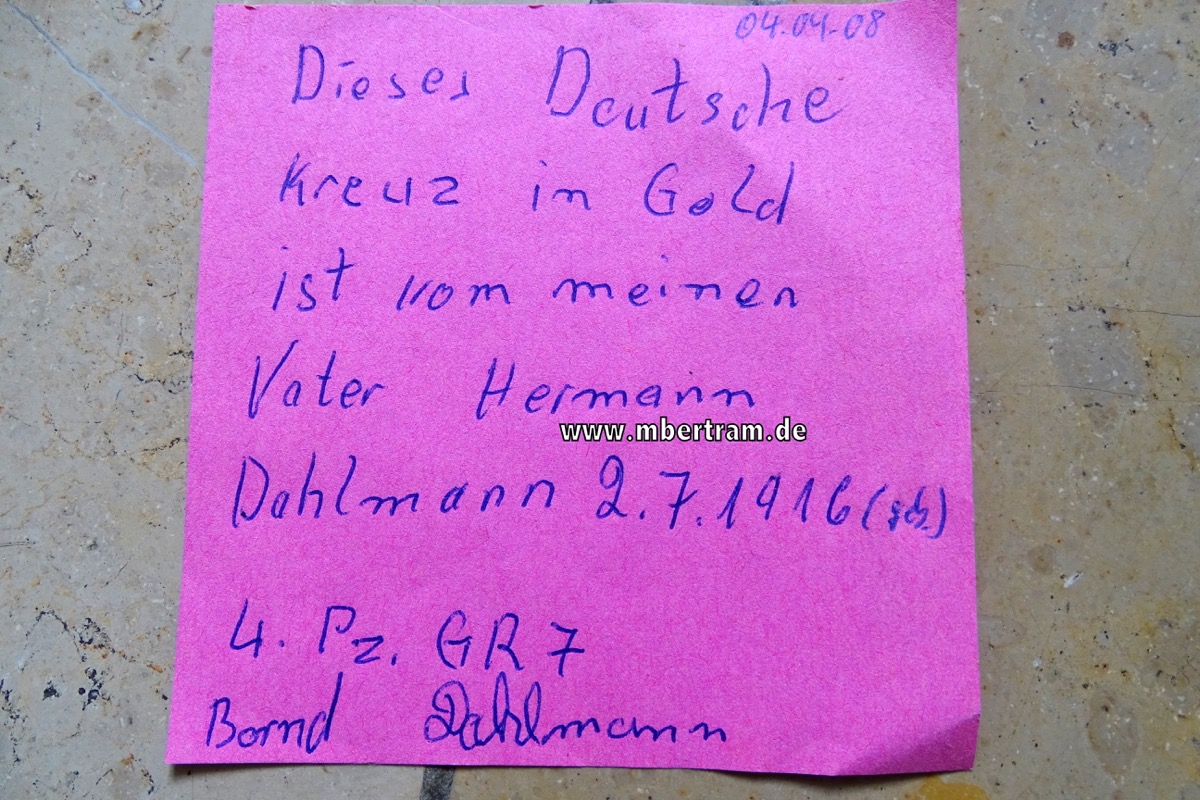 04.04.08
Dieses Deutsche
Kreuz in Gold
ist vom meinen
Vater Hermann
www.mbertram.de
Dahlmann 2.7.1916 (geb.)
4. Pz. GR 7
Bernd Dahlmann